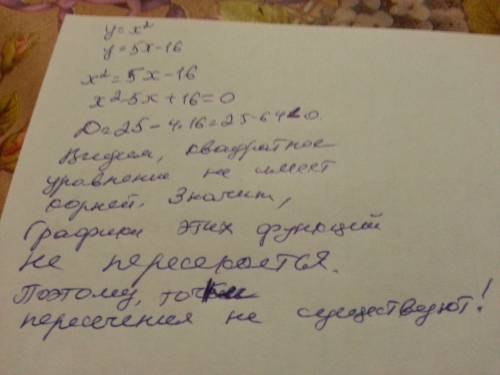 y=x²
y=5x-16
x²=5x-16
x²-5x+16=0
D=25-4·16=25-64<0.
Видем, квадратное
уравнение не имеет
корней. Значит,
Графики этих функций
не пересекаются.
Поэтому, точки
пересечения не существуют!